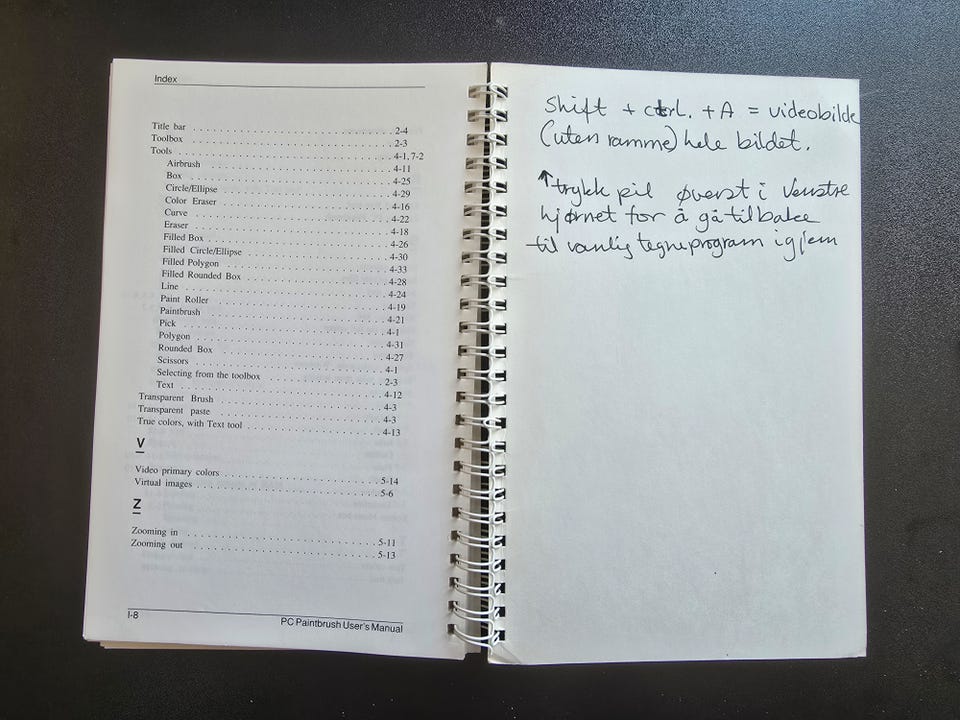 Index
Title bar . . . . . . . . . . . . . . . . . . . . . . . . . . . . 2-4
Toolbox . . . . . . . . . . . . . . . . . . . . . . . . . . . . 2-3
Tools . . . . . . . . . . . . . . . . . . . . . . . . . . . . 4-1, 7-2
Airbrush . . . . . . . . . . . . . . . . . . . . . . . . . 4-11
Box . . . . . . . . . . . . . . . . . . . . . . . . . 4-25
Circle/Ellipse . . . . . . . . . . . . . . . . . . . . . . 4-29
Color Eraser . . . . . . . . . . . . . . . . . . . . . . 4-16
Curve . . . . . . . . . . . . . . . . . . . . . . . . . 4-22
Eraser . . . . . . . . . . . . . . . . . . . . . . . . . 4-18
Filled Box . . . . . . . . . . . . . . . . . . . . . . . 4-26
Filled Circle/Ellipse . . . . . . . . . . . . . . . . . . 4-30
Filled Polygon . . . . . . . . . . . . . . . . . . . . . 4-33
Filled Rounded Box . . . . . . . . . . . . . . . . . . 4-28
Line . . . . . . . . . . . . . . . . . . . . . . . . . 4-24
Paint Roller . . . . . . . . . . . . . . . . . . . . . . 4-19
Paintbrush . . . . . . . . . . . . . . . . . . . . . . . 4-21
Pick . . . . . . . . . . . . . . . . . . . . . . . . . 4-1
Polygon . . . . . . . . . . . . . . . . . . . . . . . . 4-31
Rounded Box . . . . . . . . . . . . . . . . . . . . . 4-27
Scissors . . . . . . . . . . . . . . . . . . . . . . . . 4-1
Selecting from the toolbox . . . . . . . . . . . . . . . 2-3
Text . . . . . . . . . . . . . . . . . . . . . . . . . 4-12
Transparent Brush . . . . . . . . . . . . . . . . . . . . 4-3
Transparent paste . . . . . . . . . . . . . . . . . . . . 4-3
True colors, with Text tool . . . . . . . . . . . . . . . . 4-13
V
Video primary colors . . . . . . . . . . . . . . . . . . . 5-14
Virtual images . . . . . . . . . . . . . . . . . . . . . . 5-6
Z
Zooming in . . . . . . . . . . . . . . . . . . . . . . . 5-11
Zooming out . . . . . . . . . . . . . . . . . . . . . . . 5-13
I-8
PC Paintbrush User's Manual
Shift + ctrl. + A = videobilde
(uten ramme) hele bildet.
↑ trykk pil øverst i venstre
hjørnet for å gå tilbake
til vanlig tegneprogram igjem